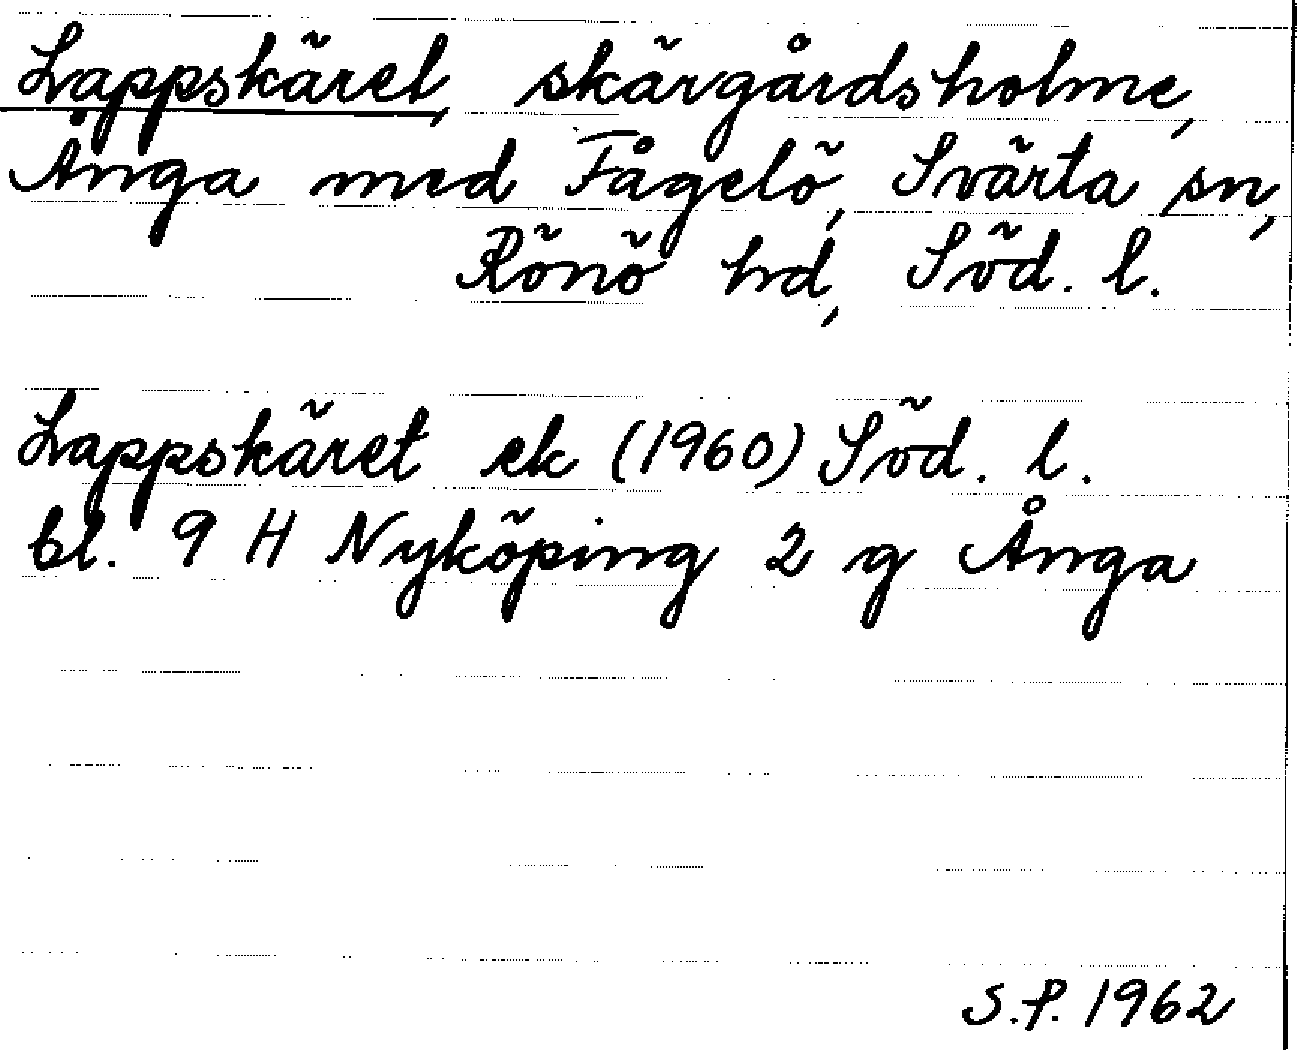 Lappskäret, skärgårdsholme,
Ånga med Fågelö, Svärta sn,
Rönö hd, Söd. l.
Lappskäret ek (1960) Söd. l.
bl. 9 H Nyköping 2 g Ånga
S.P. 1962